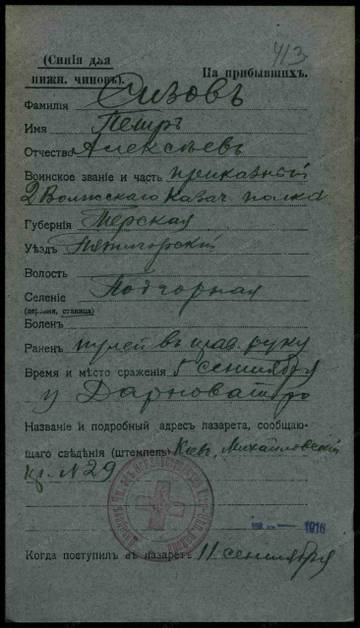 413
(Синія для
нижн. чиновъ).
На прибывшихъ.
Фамилія Сизовъ
Имя Петръ
Отчество Алексѣевъ
Воинское званіе и часть приказный
2 Волжскаго Казач полка
Губернія Терская
Уѣздъ Пятигорскій
Волость
Селеніе Подгорная
(деревня, станица)
Боленъ
Раненъ пулей въ прав. руку
Время и мѣсто сраженія 5 сентября
у
Названіе и подробный адресъ лазарета, сообщаю-
щаго свѣдѣнія (штемпель) Кіевъ, Михайловскій
№ 29
1916
Когда поступилъ въ лазаретъ 11 сентября